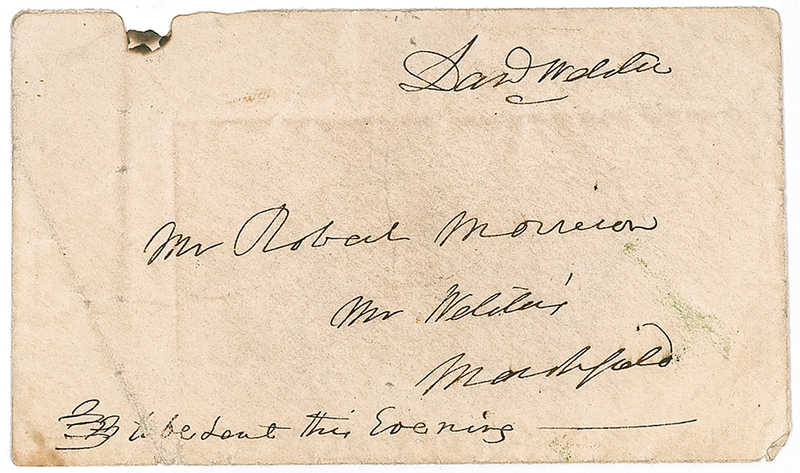 Danl Webster
Mr Robert Morrison
Mr Webster's
Marshfield
to be sent this Evening